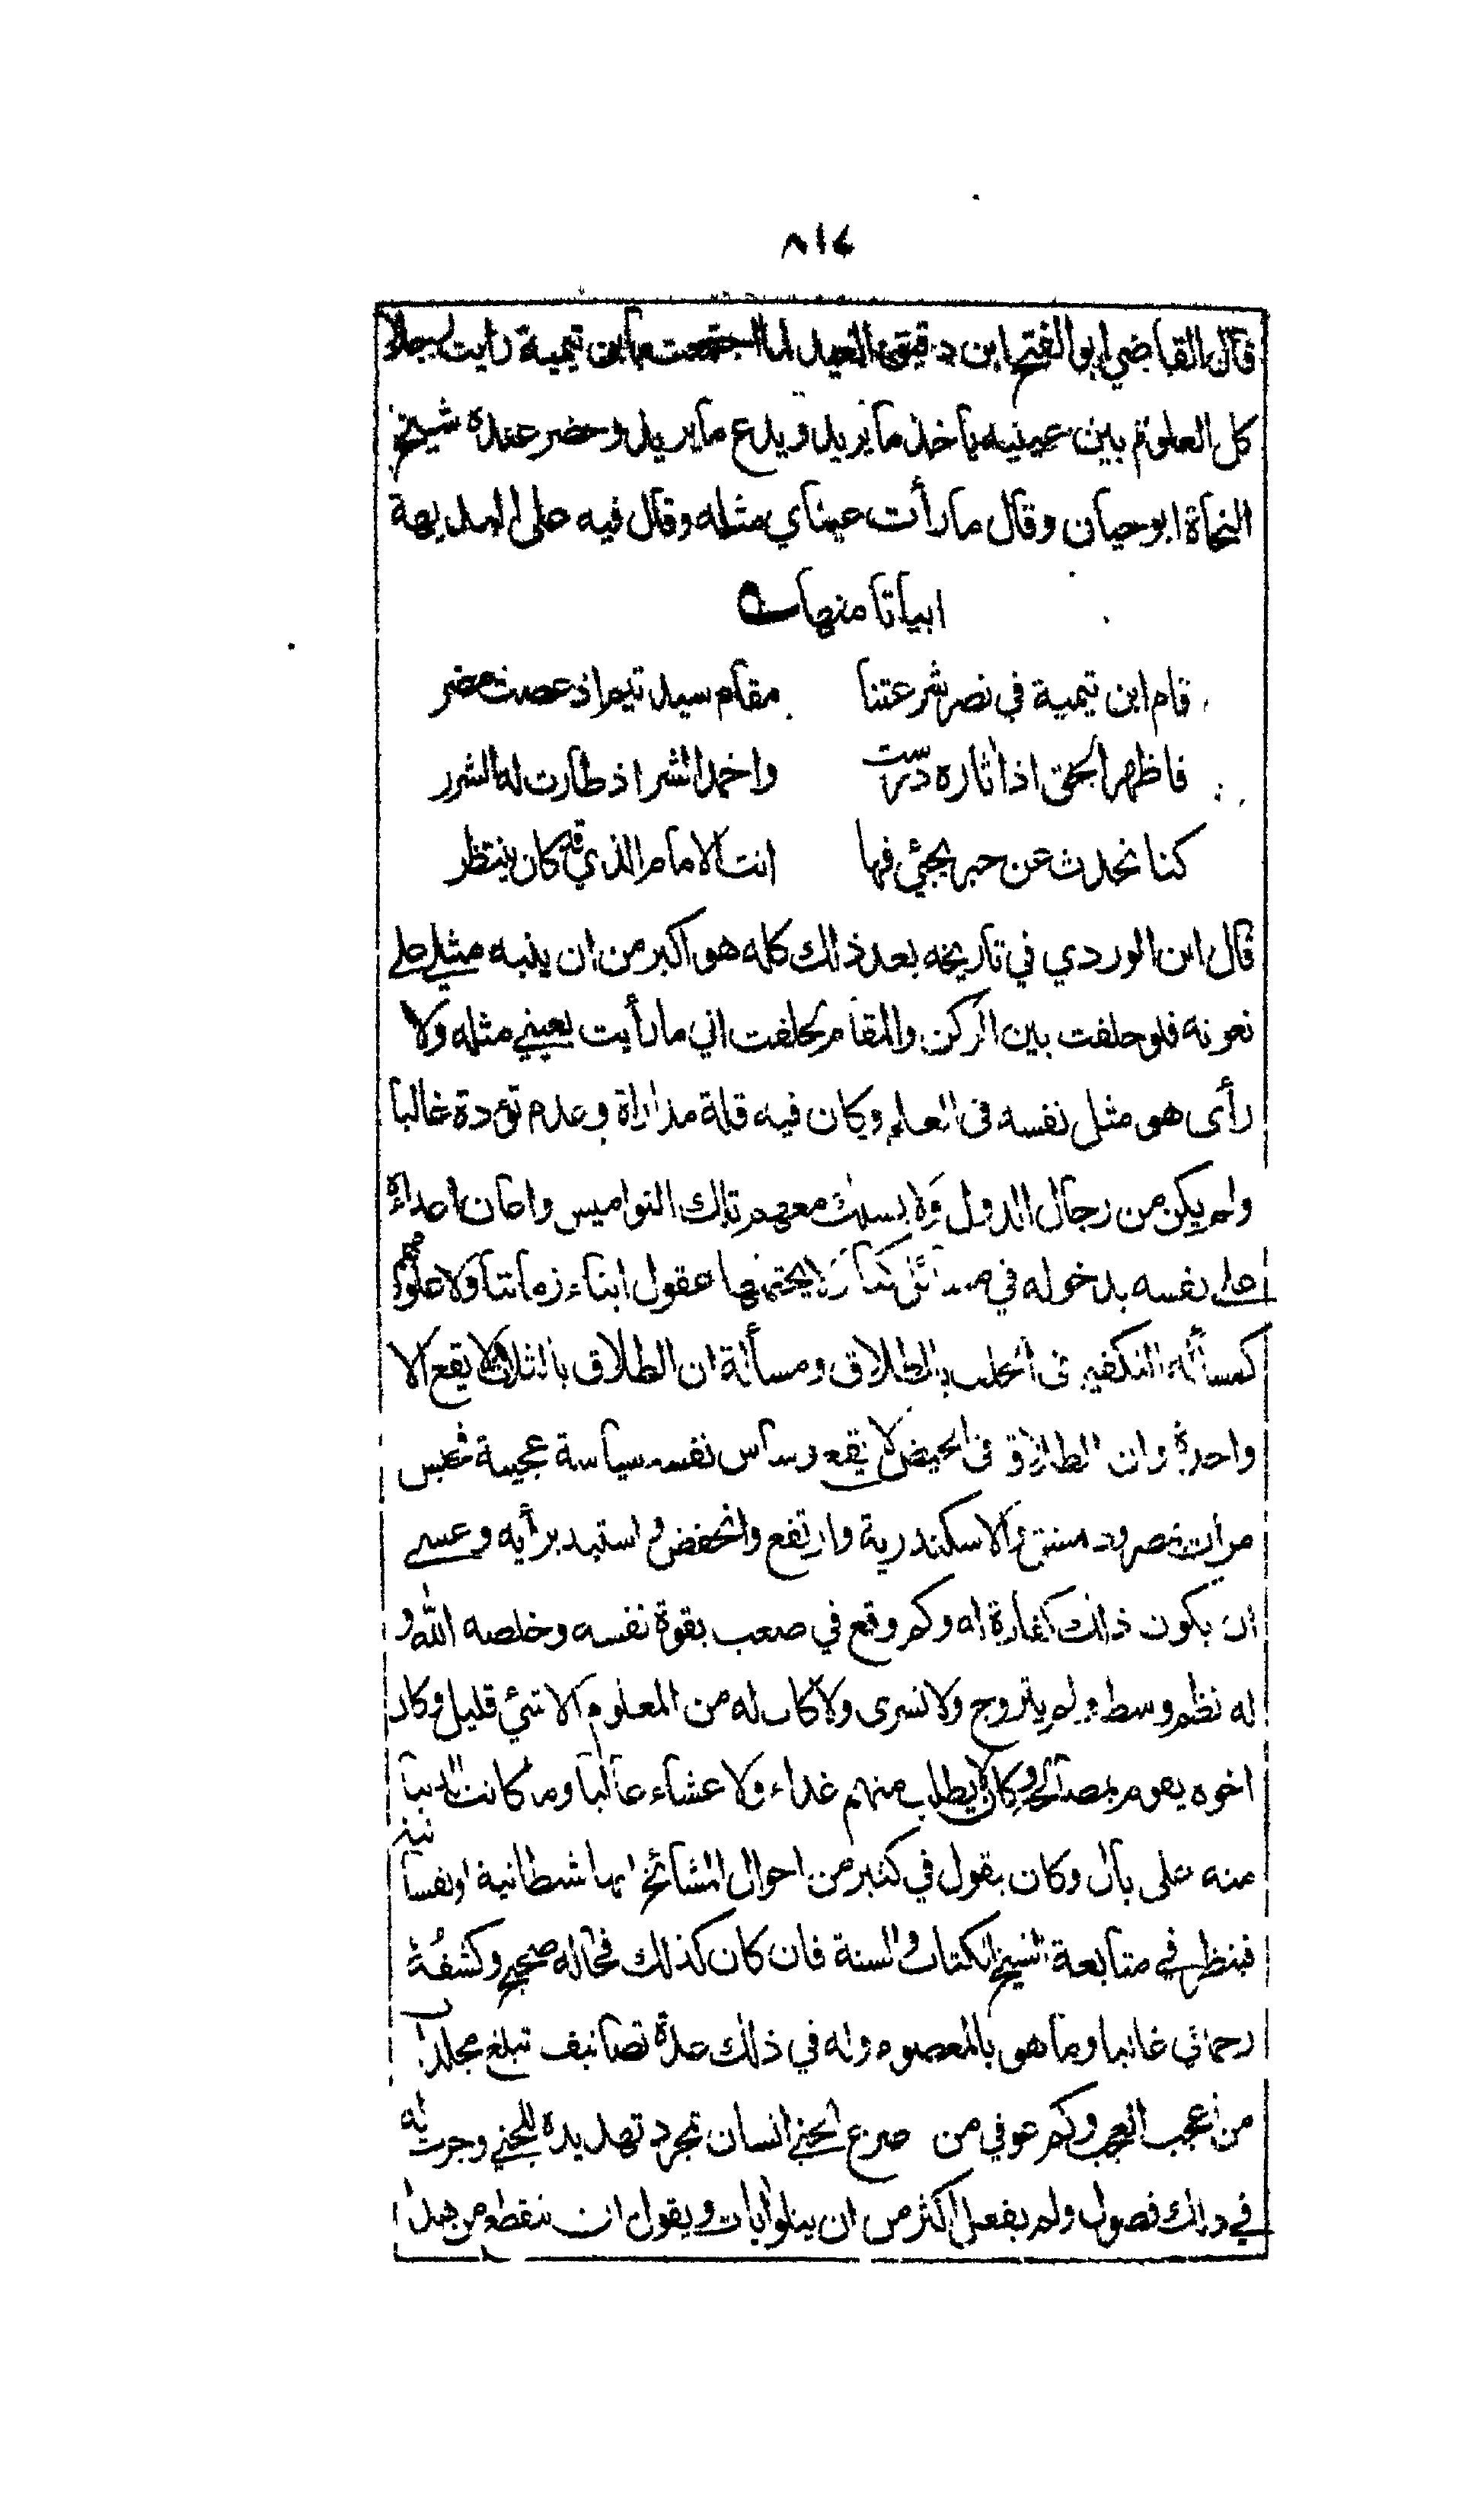 ٨١٤
قال القاضي ابو الفتح ابن دقيق العيد لما اجتمعت بابن تيمية رايت رجلا
كل العلوم بين عينيه ياخذ ما يريد ويدع ما يريد وحضر عنده شيخ
النحاة ابو حيان وقال ما رأت عيناي مثله وقال فيه على البديهة
ابياتا منها
قام ابن تيمية في نصر شرعتنا مقام سيد تيم اذ عصت مضر
فاظهر الحق اذ اثاره درست واخمد الشر اذ طارت له الشرر
كنا نحدث عن حبر يجئ فها انت الامام الذي قد كان ينتظر
قال ابن الوردي في تاريخه بعد ذلك كله هو اكبر من ان ينبه مثلي على
نعوته فلو حلفت بين الركن والمقام لحلفت اني ما رأيت بعيني مثله ولا
رأى هو مثل نفسه في العلم وكان فيه قلة مداراة وعدم تؤدة غالبا
ولم يكن من رجال الدول ولا يسلك معهم تلك النواميس واعان اعداءه
على نفسه بدخوله في مسائل كبار لا يحتملها عقول ابناء زماننا ولا علومهم
كمسألة التكفير في الحلف بالطلاق ومسألة ان الطلاق بالثلاث لا يقع الا
واحدة وان الطلاق في الحيض لا يقع وساس نفسه سياسة عجيبة فحبس
مرات بمصر ودمشق والاسكندرية وارتفع وانخفض واستبد برأيه وعسى
ان يكون ذلك كفارة له وكم وقع في صعب بقوة نفسه وخلصه الله و
له نظم وسط ولم يتزوج ولا تسرى ولا كان له من المعلوم الا شئ قليل وكان
اخوه يقوم بمصالحه وكان لا يطلب منهم غداء ولا عشاء غالبا وما كانت الدنيا
منه على بال وكان يقول في كثير من احوال المشائخ انها شطانية او نفسانية
فينظر في متابعة الشيخ الكتاب والسنة فان كان كذلك فحاله صحيح وكشفه
رحماني غالبا وما هو بالمعصوم وله في ذلك عدة تصانيف تبلغ مجلدات
من اعجب العجب وكم عوفي من صرع الجني انسان بمجرد تهديده للجني وجرت له
في ذلك فصول ولم يفعل اكثر من ان يتلو ايات ويقول ان تنقطع من هذا